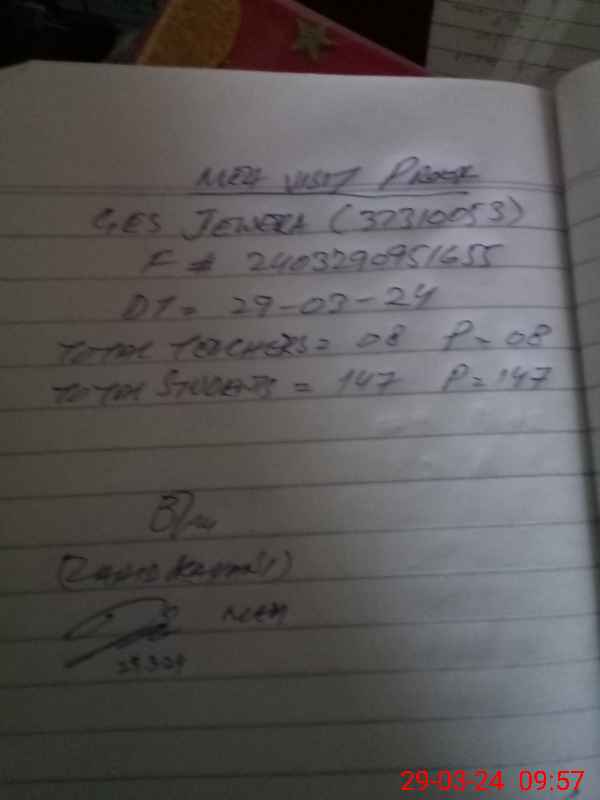 MEA VISIT PROOF
GES JEWERA (37310053)
F # 2403290951655
DT = 29-03-24
TOTAL TEACHERS = 08 P = 08
TOTAL STUDENTS = 147 P = 147
MEA
29.3.24
29-03-24 09:57